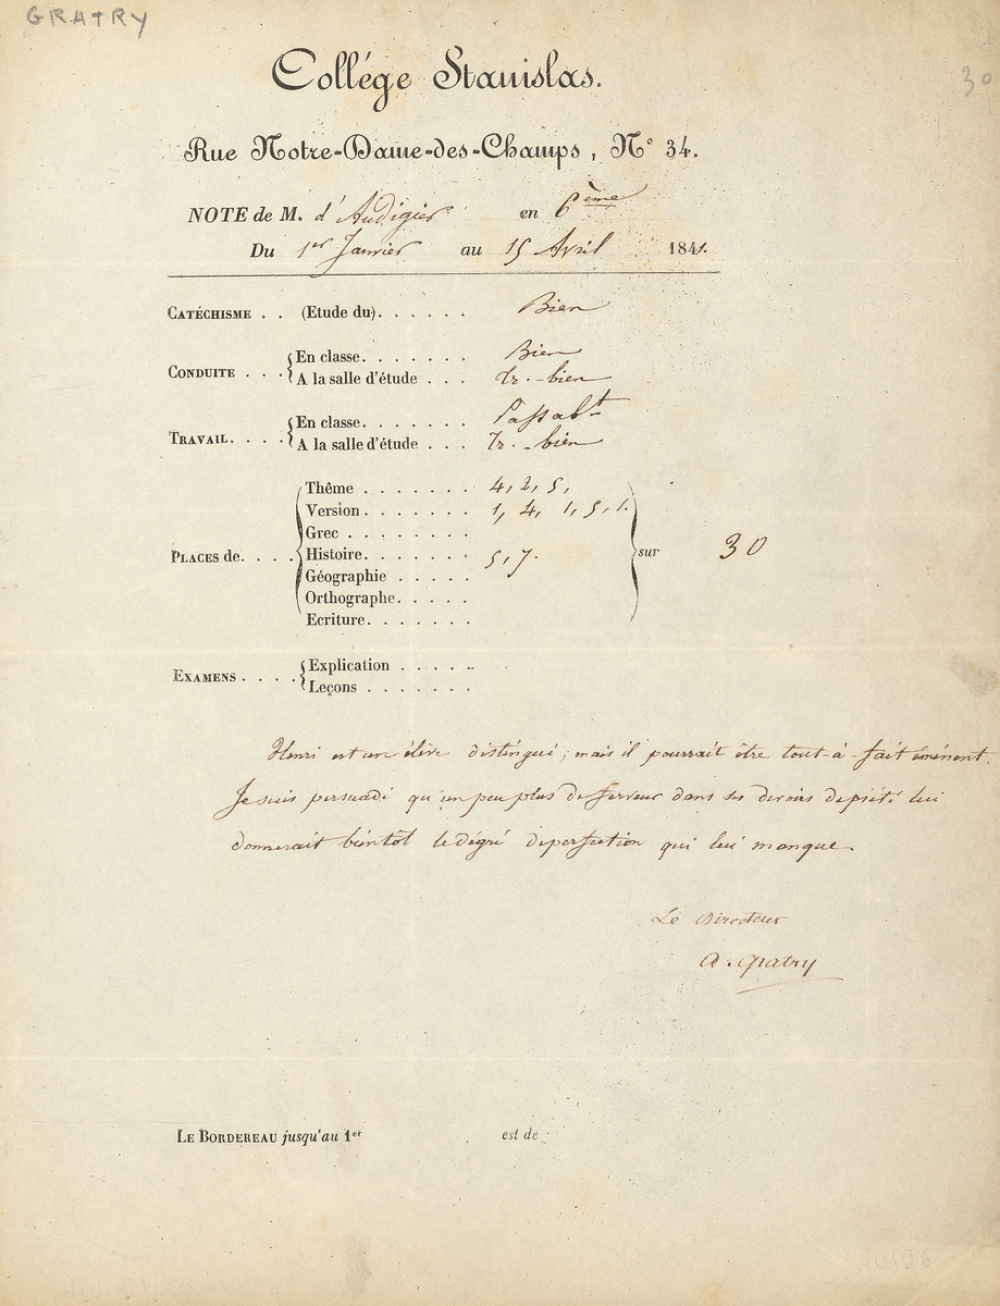 GRATRY
30
Collége Stanislas.
Rue Notre-Dame-des-Champs, N° 34.
NOTE de M. d'Audigier en 6ème
Du 1er Janvier au 15 Avril 1841.
CATÉCHISME . . (Etude du) . . . . . . Bien
CONDUITE . . . En classe. . . . . . . Bien
A la salle d'étude . . . Tr. - bien
TRAVAIL. . . . En classe. . . . . . . Passabt
A la salle d'étude . . . Tr. - bien
Thême . . . . . . . 4, 2, 5,
Version . . . . . . . 1, 4, 1, 5, 1.
Grec . . . . . . . .
PLACES de. . . . Histoire. . . . . . . 5, 7. sur 30
Géographie . . . . .
Orthographe. . . . .
Ecriture. . . . . . .
EXAMENS . . . . Explication . . . . .
Leçons . . . . . . .
Henri est un élève distingué; mais il pourrait être tout-à-fait éminent.
Je suis persuadé qu'un peu plus de ferveur dans ses devoirs de piété lui
donnerait bientôt le dégré de perfection qui lui manque.
Le Directeur
A. Gratry
LE BORDEREAU jusqu'au 1er est de